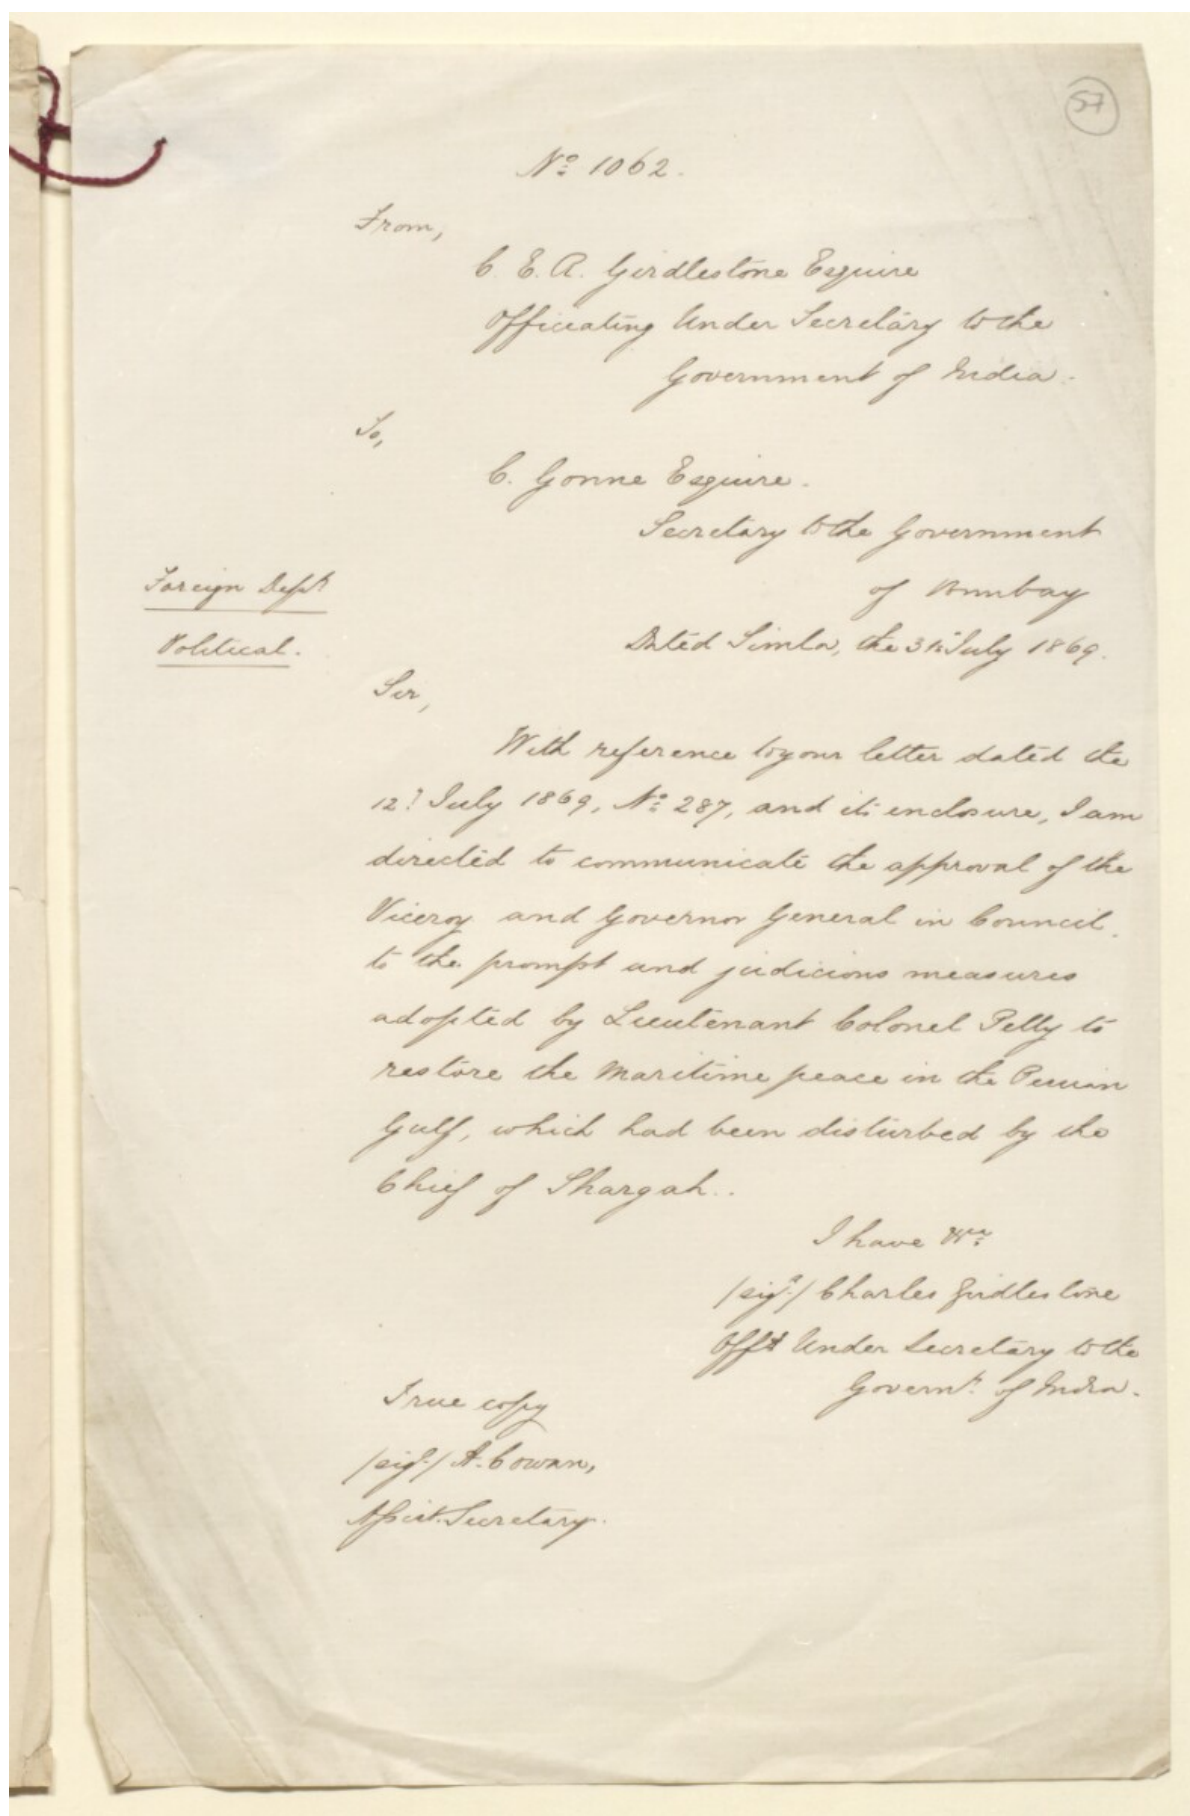 57
No 1062.
From,
C. E. R. Girdlestone Esquire
Officiating Under Secretary to the
Government of India.
To,
C. Gonne Esquire.
Secretary to the Government
of Bombay
Foreign Dept
Political.
Dated Simla, the 31st July 1869.
Sir,
With reference to your letter dated the
12th July 1869, No 287, and its enclosure, I am
directed to communicate the approval of the
Viceroy and Governor General in Council,
to the prompt and judicious measures
adopted by Lieutenant Colonel Pelly to
restore the maritime peace in the Persian
Gulf, which had been disturbed by the
Chief of Shargah..
I have &ca
/sigd/ Charles Girdlestone
Offg Under Secretary to the
Governt. of India.
True copy
/sigd/ A. Cowan,
Assist. Secretary.